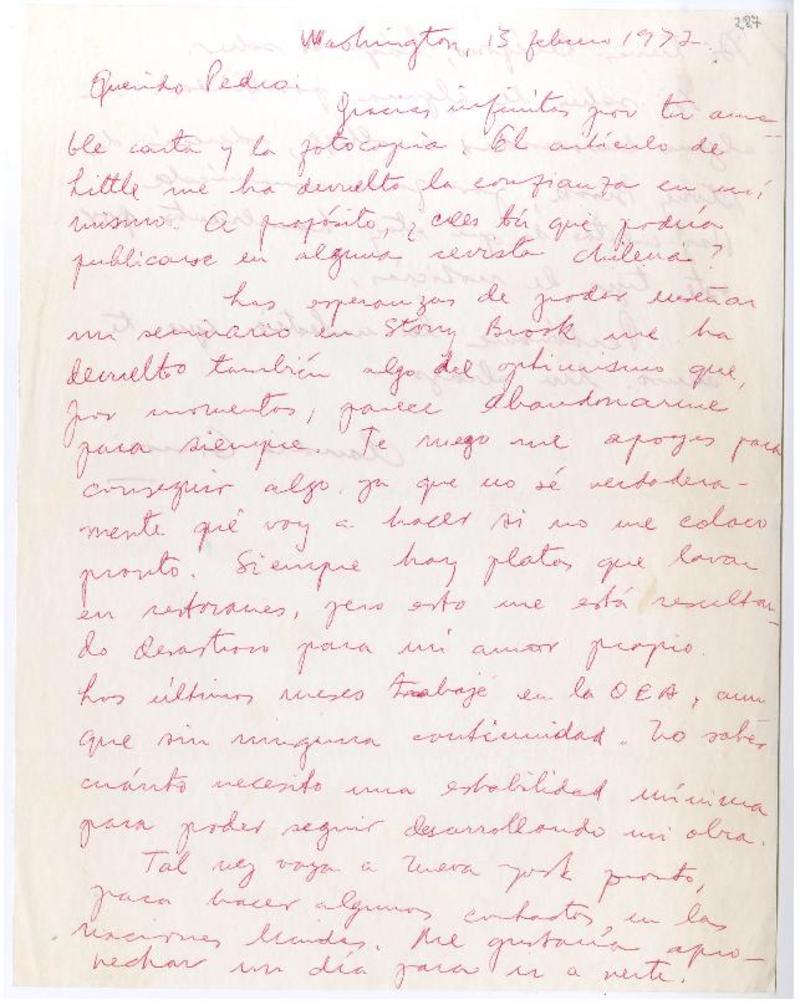 227
Washington, 13 febrero 1972.
Querido Pedro:
Gracias infinitas por tu ama-
ble carta y la fotocopia. El artículo de
Little me ha devuelto la confianza en mí
mismo. A propósito, ¿crees tú que podría
publicarse en alguna revista chilena?
Las esperanzas de poder enseñar
mi seminario en Stony Brook me ha
devuelto también algo del optimismo que,
por momentos, parece abandonarme
para siempre. Te ruego me apoyes para
conseguir algo, ya que no sé verdadera-
mente qué voy a hacer si no me coloco
pronto. Siempre hay platos que lavar
en restoranes, pero esto me está resultan-
do desastroso para mi amor propio.
Los últimos meses trabajé en la OEA, aun
que sin ninguna continuidad. No sabes
cuánto necesito una estabilidad mínima
para poder seguir desarrollando mi obra.
Tal vez vaya a Nueva York pronto,
para hacer algunos contactos en las
Naciones Unidas. Me gustaría apro-
vechar un día para ir a verte.